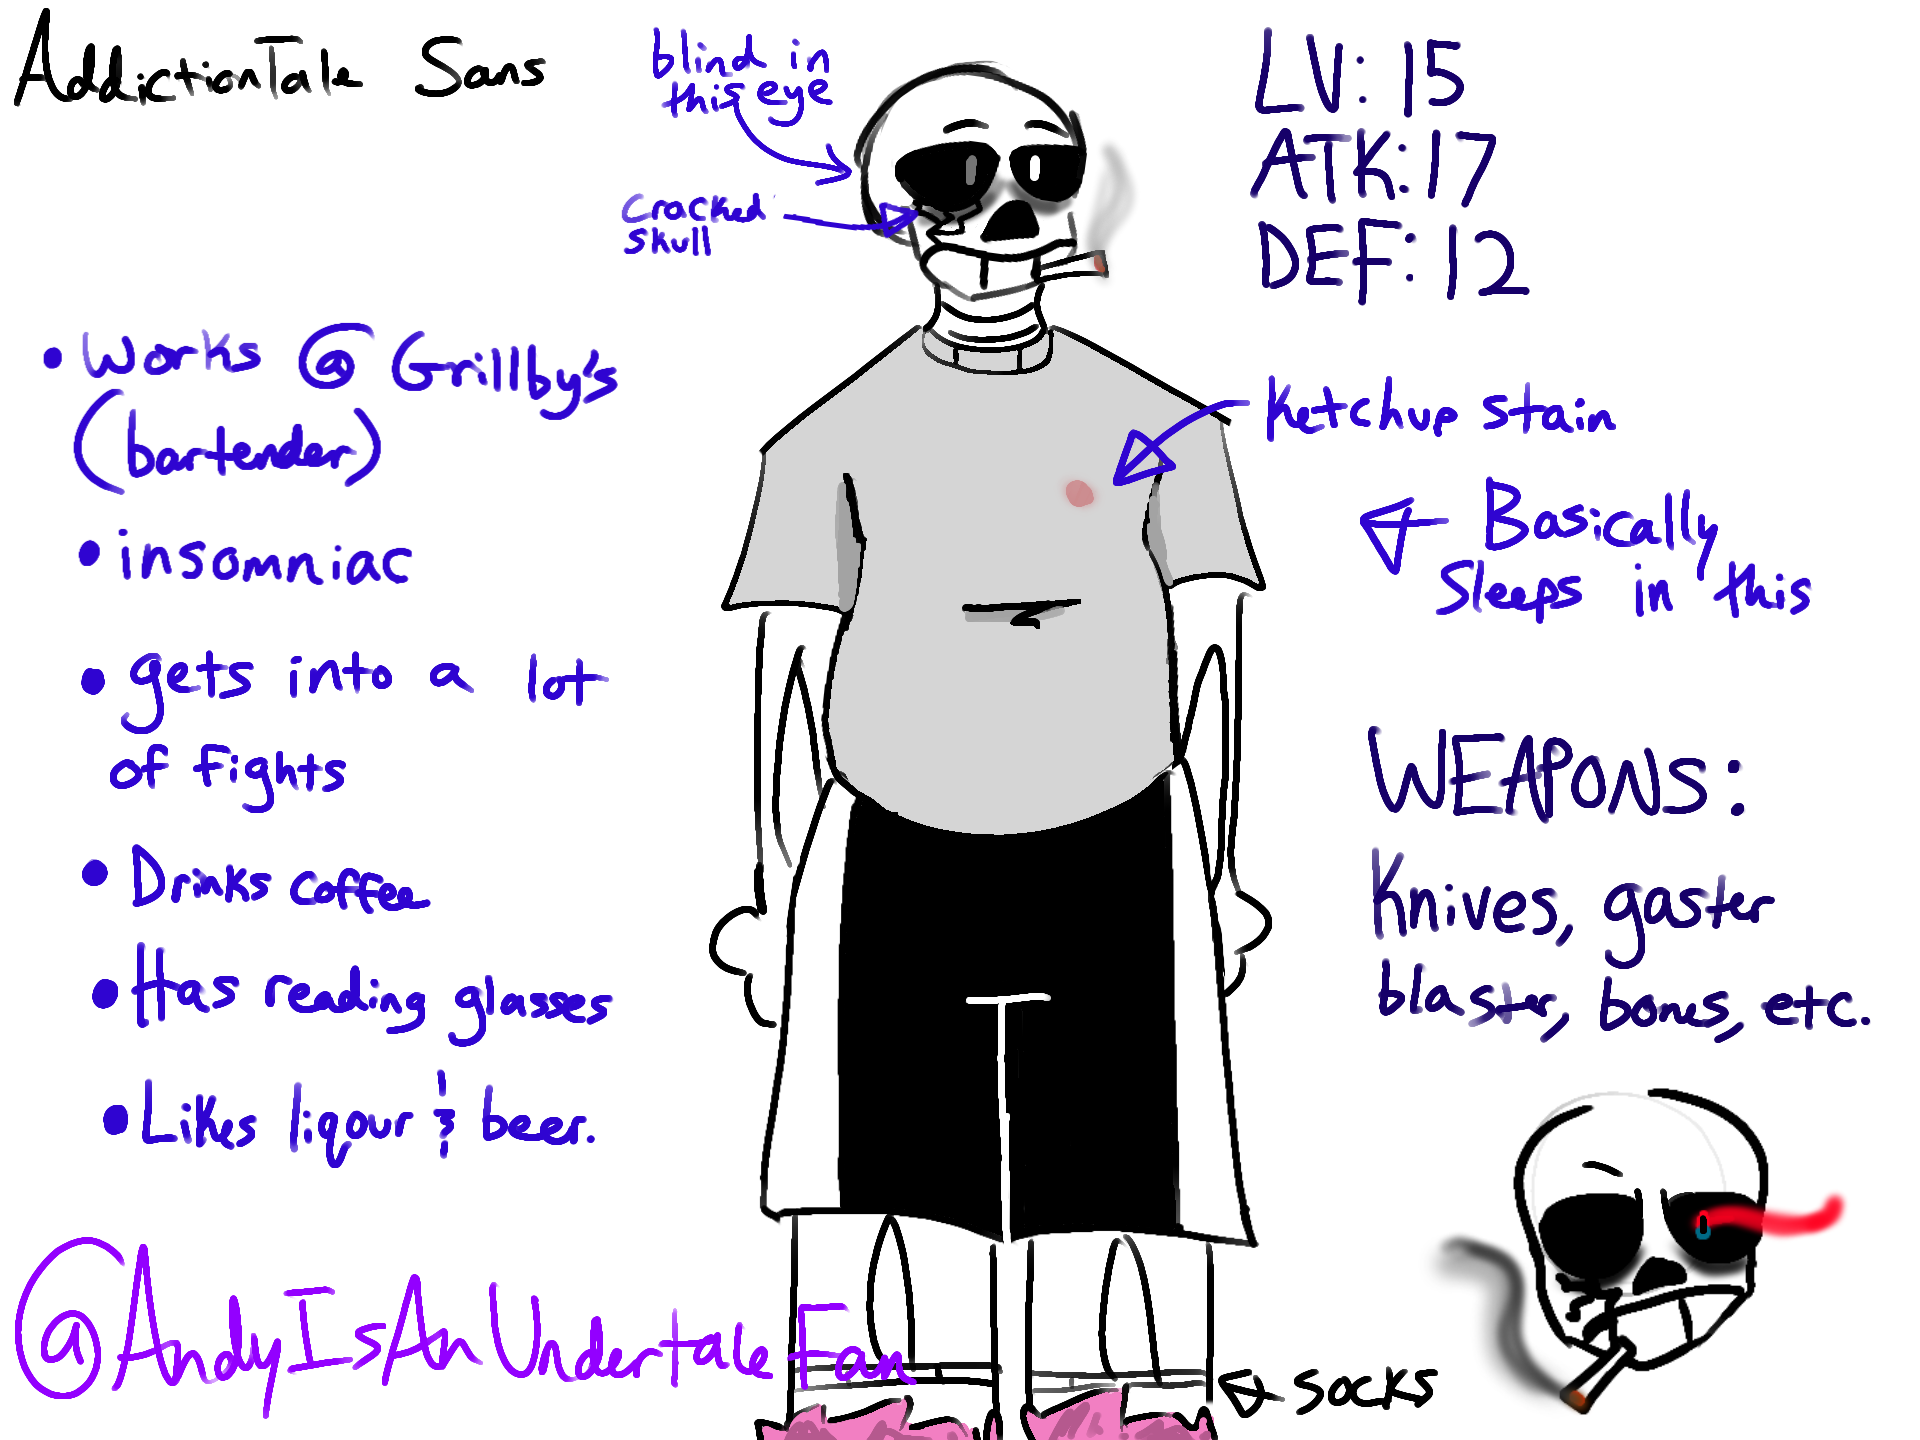 AddictionTale Sans
blind in
this eye
cracked
skull
LV: 15
ATK: 17
DEF: 12
• Works @ Grillby's
(bartender)
• insomniac
• gets into a lot
of fights
• Drinks coffee
• Has reading glasses
• Likes liqour & beer.
Ketchup stain
Basically
Sleeps in this
WEAPONS:
Knives, gaster
blaster, bones, etc.
socks
@AndyIsAnUndertaleFan